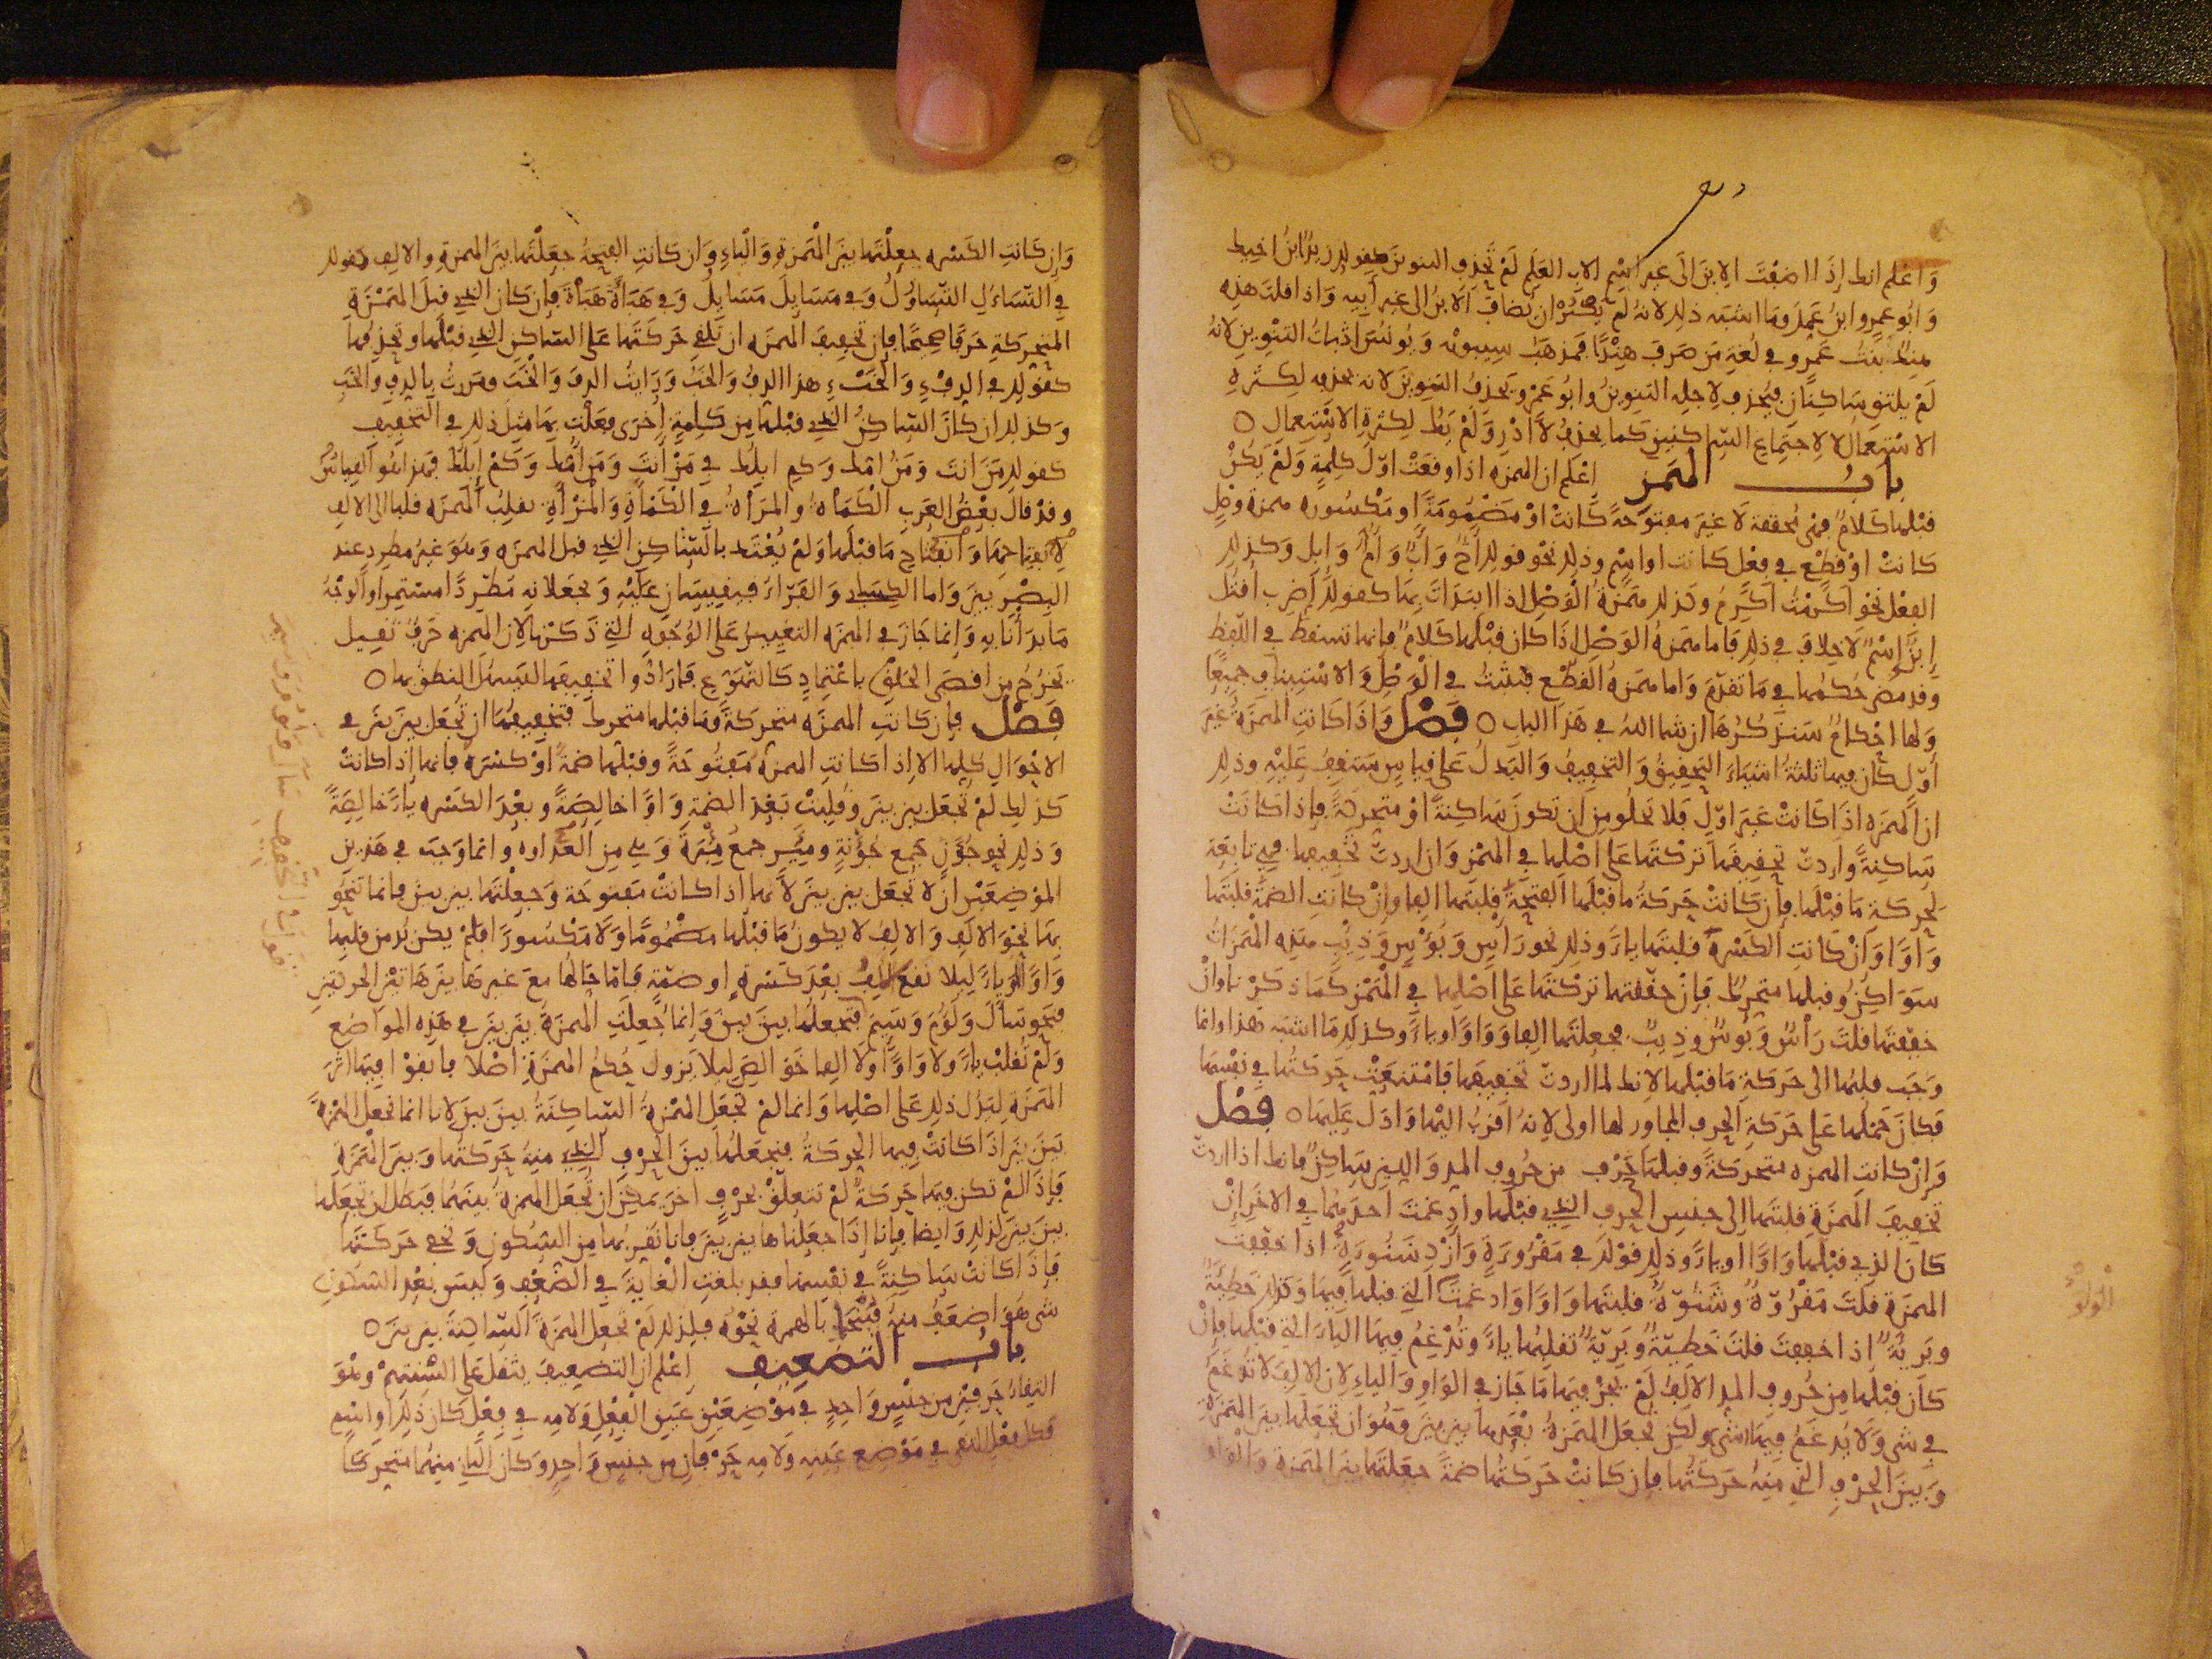 وَاعْلم انك إذَا اضفْتَ الابنَ الَى غيرِ اسْمِ الابِ العَلَم لَمْ تحْذِفِ التنوينَ كقولكَ زيدٌ ابنُ اخيكَ
وَابُو عمرٍو ابنُ عَمِكَ ومَا اشبَه ذلك لانهُ لمْ يكثُرْ ان يُضافَ الابنُ الى غيرِ أبيهِ وَاذا قلتَ هذِهِ
هندٌ بنتُ عَمْرٍو في لُغةِ مَن صَرفَ هِنْدًا فمذهَبُ سِيبويْهِ وَيُونُسَ اثباتُ التنْوينِ لانهُ
لَمْ يلتقِ سَاكنانِ فيُحذفَ لاجلهِ التنوينُ وابُو عَمْرٍو يَحذفُ التنوينَ لانه يحذفه لكَثرةِ
الاستعمَالِ لا لِاجتِمَاعِ السّاكنينِ كما يحذفُ لَا أدْرِ وَلَمْ يَكُ لكثرةِ الاسْتِعمال ٥
بابُ الهَمزِ اعْلَم ان الهمزه اذا وقعَتْ اوّلَ كلِمةٍ وَلَمْ يَكُنْ
قبْلها كَلَامٌ فهى مُحققة لَا غيرَ مفتوحَةً كَانتْ اوْ مَضْمُومَةً او مَكْسُوره همزة وصْلٍ
كانتْ اوْ قطْعٍ في فِعْلٍ كانت او اسْمٍ وذلكَ نحْو قولك أَخٌ وَأَبٌ وَأُمٌّ وَإِبِلٌ وَكذلكَ
الفِعْل نحْوَ أكْرَمْتُ أُكْرِمُ وكذلكَ هَمْزَةُ الْوَصْلِ اذا ابتدَاتَ بِهَا كقولكَ اضرِب اقتُل
إبْنٌ إِسْمٌ لاخِلافَ في ذلك فَاما همَزةُ الوَصْلِ إذَا كان قَبْلهَا كلامٌ فانها تسقطُ في اللّفظِ
وقد مضى حُكمُها فِي مَا تقدّمَ وَاما همَزةُ القطْعِ فتثبتُ في الْوَصْلِ وَالاسْتِينافِ جمِيعًا
وَلها احْكامٌ سَنذكُرُهَا ان شا اللهُ في هَذَا البابِ ٥ فَصْل وَاذَا كَانتِ الهمزَةُ غيْرَ
أوّلٍ كان فيها ثلثةُ اشْيَاءَ التحقيقُ وَالتخفيفُ وَالبَدلُ عَلى قياسٍ سَتقِفُ عَليْهِ وذلك
ان الهمَزه اذَا كَانتْ غيَر اوّلٍ فَلا تخلُو مِن ان تكونَ سَاكِنةً اوْ متحركةً فإذا كَانتْ
سَاكِنةً واردتَ تخفِيفَهَا تركْتَها عَلى اصْلِها فِي الهمْزِ وَان اردتَ تخْفِيفها فهِيَ تابعَة
لحركةِ مَا قبْلَها فإن كانتْ حَركةُ ما قبْلَها الفتحَةَ قلبتَها الِفا وانْ كانتِ الضمةَ قلبْتَها
وَاوًا وَانْ كَانتِ الكَسْرةَ قلبتَها ياءً وذلك نحوَ رَأْسٍ وَبُؤسٍ وَذِئْبٍ هَذِه الْهَمَزَاتُ
سَوَاكِنُ وقبلها متحركٌ فَإنْ حقَّقتَها تركْتَها عَلى اصْلِها فِي الْهَمْزِ كَمَا ذكَرْنا وانْ
خفّفتَها قلتَ رَاسٌ وَبُوسٌ وذِيبٌ فجعلتَها الِفا وَوَاوًا وياءً وكذلكَ مَا اشبه هَذا وانما
وَجَب قلبُها الى حَركةِ مَا قبْلها لانك لما اردتَ تخفيفهَا فَامْتنعَتْ حَركتُها فِي نفْسِها
فكانَ حَمْلُها عَلى حَرَكةِ الحرفِ المجاورِ لها اولى لانهُ اقربُ اليْها وَادَلُّ عَليْها ٥ فصْل
وَانْ كانتِ الهمزه متحركةً وقبلهَا حَرْف من حُروفِ المدِ وَاللينِ سَاكِنٌ فانك اذا اردتَ
تخفيفَ الهمزَةِ قلبتَها إلى جنسِ الحرفِ الذِي قبْلَها وادغمتَ احدَهُما فِي الاخَرِ إنْ
كانَ الذِي قبْلها وَاوًا او ياءً وذلك قوْلكَ فِي مَقْرُوءَةٍ وَأزْدِ شَنُوءَةٍ اذا خففتَ
الهمزةَ قلتَ مَقْرُوّةٌ وشَنُوّةٌ قلبتَها وَاوًا وَادغمتَ التِي قبلها فِيها وَكذلكَ خَطِيئَةٌ
وبَرِيئةٌ اذا خففتَ قلتَ خَطِيّةٌ وبَرِيّةٌ تقلبُها ياءً وتُدْغِمُ فِيهَا الياءَ التي قبْلها فإنْ
كَان قبْلَها مِن حُروفِ المدِ الالِفُ لَمْ يجُزْ فيهَا مَا جَاز في الوَاوِ وَالياءِ لان الالفَ لا تُدغَمُ
في شىءٍ وَلا يُدغَمُ فِيها شىءٌ ولكِن تُجعَلُ الهمَزةُ بعْدها بيْنَ بيْنَ وهُوَ ان تجعَلها بينَ الهمَزةِ
وَبينَ الحرْفِ الذِي مِنهُ حَركتُها فان كَانتْ حَركتُها ضمةً جعَلتَها بينَ الهمَزةِ وَالْوَاوِ
الْوَاوُ
وَان كَانتِ الكَسْره جعلْتَها بينَ الْهَمزةِ وَالْياءِ وَان كانتِ الفتحةُ جعَلْتَها بينَ الهمزةِ والالفِ كقولك
فِي التّسَاءُلِ التّسَاوُلُ وَفي مَسَائِلَ مَسَايِلُ وَفي هَبَاءَةٍ هَبَاةٌ فإن كَان الذِي قبلَ الهَمْزةِ
المتحرِّكةِ حَرفًا صحِيحًا فإن تخفيفَ الهمزَه ان تُلقِيَ حَركتَها عَلى السّاكنِ الذِي قبْلَها وتحذِفَها
كقولكَ في الدِفْءِ وَالْخَبْءِ هذا الدِفُ وَالخَبُ وَرَايتُ الدِفَ وَالْخَبَ ومررتُ بالدِفِ وَالخَبِ
وَكذلك ان كَانَ السّاكِنُ الذِي قبْلَها مِن كَلِمةٍ اخْرَى فعَلْتَ بِهَا مثلَ ذلك في التخفِيفِ
كقولكَ مَنَ انتَ وَمَنُ امُّك وَكمِ ابِلُك في مَنْ أنتَ وَمَنْ أُمُّك وَكَمْ إبلُكَ فهَذا هُو القِياسُ
وقدْ قال بعْضُ العَربِ الْكَمَاهُ والمرَاهُ في الْكَمْأَةِ وَالْمَرْأَةِ بقلبِ الهمَزه قلبًا الى الالفِ
لِانْفِتاحِهَا وَانفتَاحِ مَا قبْلَها وَلمْ يُعْتَدَّ بالسّاكنِ الذِي قبل الهمزَه وَهُوَ غيرُ مطردٍ عند
البصْرِيينَ وَاما الكِسَائي وَالفَرّاءُ فيقِيسَانِ عَليْهِ وَيجعَلانِهِ مطّرِدًا مستمِرا والوَجْهُ
مَا بدَأْنَا بِهِ وَانما جَازَ في الهمزَه التغيِيرُ عَلى الوُجُوهِ التِي ذَكرْنَها لان الهمزه حَرفٌ ثقيل
يَخرُجُ مِن اقصَى الحلقِ باعْتِمادٍ كالتهَوُّعِ فَارَادُوا تخفيفَها ليسْهُلَ النطقُ بِها ٥
فَصْل فإن كانتِ الهمزَه متحركَةً وَمَا قبْلها متحرك فتخفِيفُها ان تُجعَل بينَ بينَ في
الاحْوَالِ كُلِّها الا اذا كَانتِ الهمزةُ مَفتُوحَةً وقبْلَها ضمةٌ اوْ كسْرَة فانها إذا كانتْ
كذلك لمْ تُجعَل بينَ بينَ وقُلِبَتْ بَعْدَ الضمةِ وَاوًا خالِصَةً وبعْدَ الكَسْره ياءً خالِصَةً
وَذلك نحو جُؤَنٍ جَمع جُؤْنَةٍ ومِئَرٍ جمعُ مِئْرَةٍ وَهِي مِن العَدَاوه وانما وَجبَ في هَذينِ
الموْضِعَيْنِ ان لا تُجعَل بينَ بينَ لأنها إذا كانتْ مَفتوحَة وَجعلْتَها بين بينَ فإنما تنحُو
بِها نحْوَ الالفِ وَالالِفُ لا يكونُ مَا قبْلها مَضْمُومًا وَلَا مَكسُورًا فلمْ يكن بُد مِن قلْبِها
وَاوًا وياءً لِئلا تقعَ الالفُ بعْدَ كَسْرةٍ او ضمّةٍ فَامّا حَالُها مَعَ غيرِها بينهَا بَيْنَ الحرفيْنِ
فنحو سَأَلَ وَلَؤُمَ وَسَئِمَ فتجعلُها بينَ بينَ وَانما جُعِلتِ الهمزةُ بينَ بينَ في هَذِه المواضِع
وَلَمْ تُقلَبْ ياءً ولا وَاوًا ولَا الِفا خَوْفًا لِئلا يَزولَ حُكمُ الهمزَةِ اصْلًا فابقوْا فِيها اثَرَ
الهمَزةِ لِيدُل ذلك عَلى اصْلِها وَانما لمْ تُجعَلِ الهمْزةُ السّاكِنَةُ بينَ بينَ لانا انما نجعَلُ الهمْزةَ
بينَ بينَ اذَا كانتْ فِيها الحركةُ فنجعَلُها بينَ الحرْفِ الذِي مِنهُ حَركتُها وَبينَ الهَمْزةِ
فَإذا لمْ تكن فِيها حَركَةٌ لمْ تتعلّقْ بحرْفٍ آخرَ يمكِنُ ان تُجعَل الهمزةُ بينهُما فبَطل ان تجعَلها
بينَ بينَ لذلك وَايضًا فإنا إذَا جعلْناها بينَ بينَ فانا نقرّبُها مِن السُكونِ وَنخفي حَركَتَها
فَإذَا كانتْ سَاكِنةً في نفْسِها فقد بلغتِ الْغايةَ في الضّعْفِ وَليسَ بعْدَ السّكونِ
شىء هُوَ اضعَفُ منهُ فيُنْحَا بالهمزه نحْوَهُ فلِذلكَ لَمْ تُجعَلِ الهمزَةُ السّاكنةُ بينَ بينَ ٥
بابُ التضعِيفِ اعْلم ان التضعِيفَ يثقل عَلى السْنتِهِمْ وهُوَ
التقاءُ حَرفيْنِ مِن جنْسٍ وَاحِدٍ في موْضِعَيْنِ عَيْنِ الفِعْلِ وَلامِهِ في فِعْلٍ كان ذلك او اسْمٍ
فكل فِعْلٍ التقى في مَوْضِعِ عَيْنِهِ وَلامِه حَرْفانِ مِن جنْسٍ وَاحِدٍ وَكان الثاني مِنهُما متحركًا